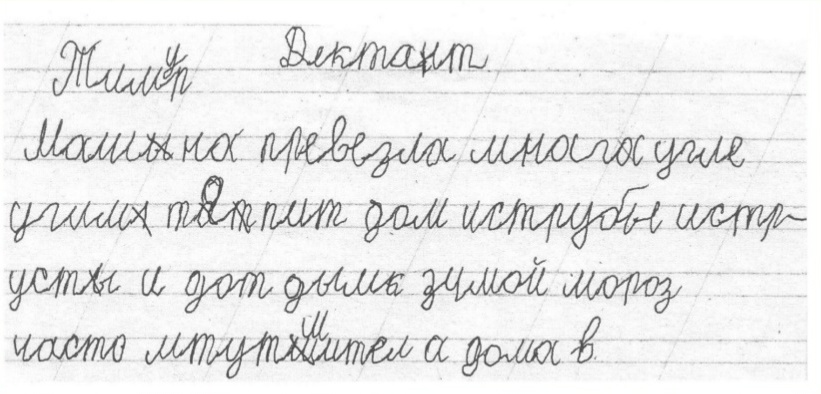 Диктант
Тимур
Машина превезла многа угле
угими топпит дом иструбы истр-
усты и дот дымк зимой мороз
часто мтут шител а дома в